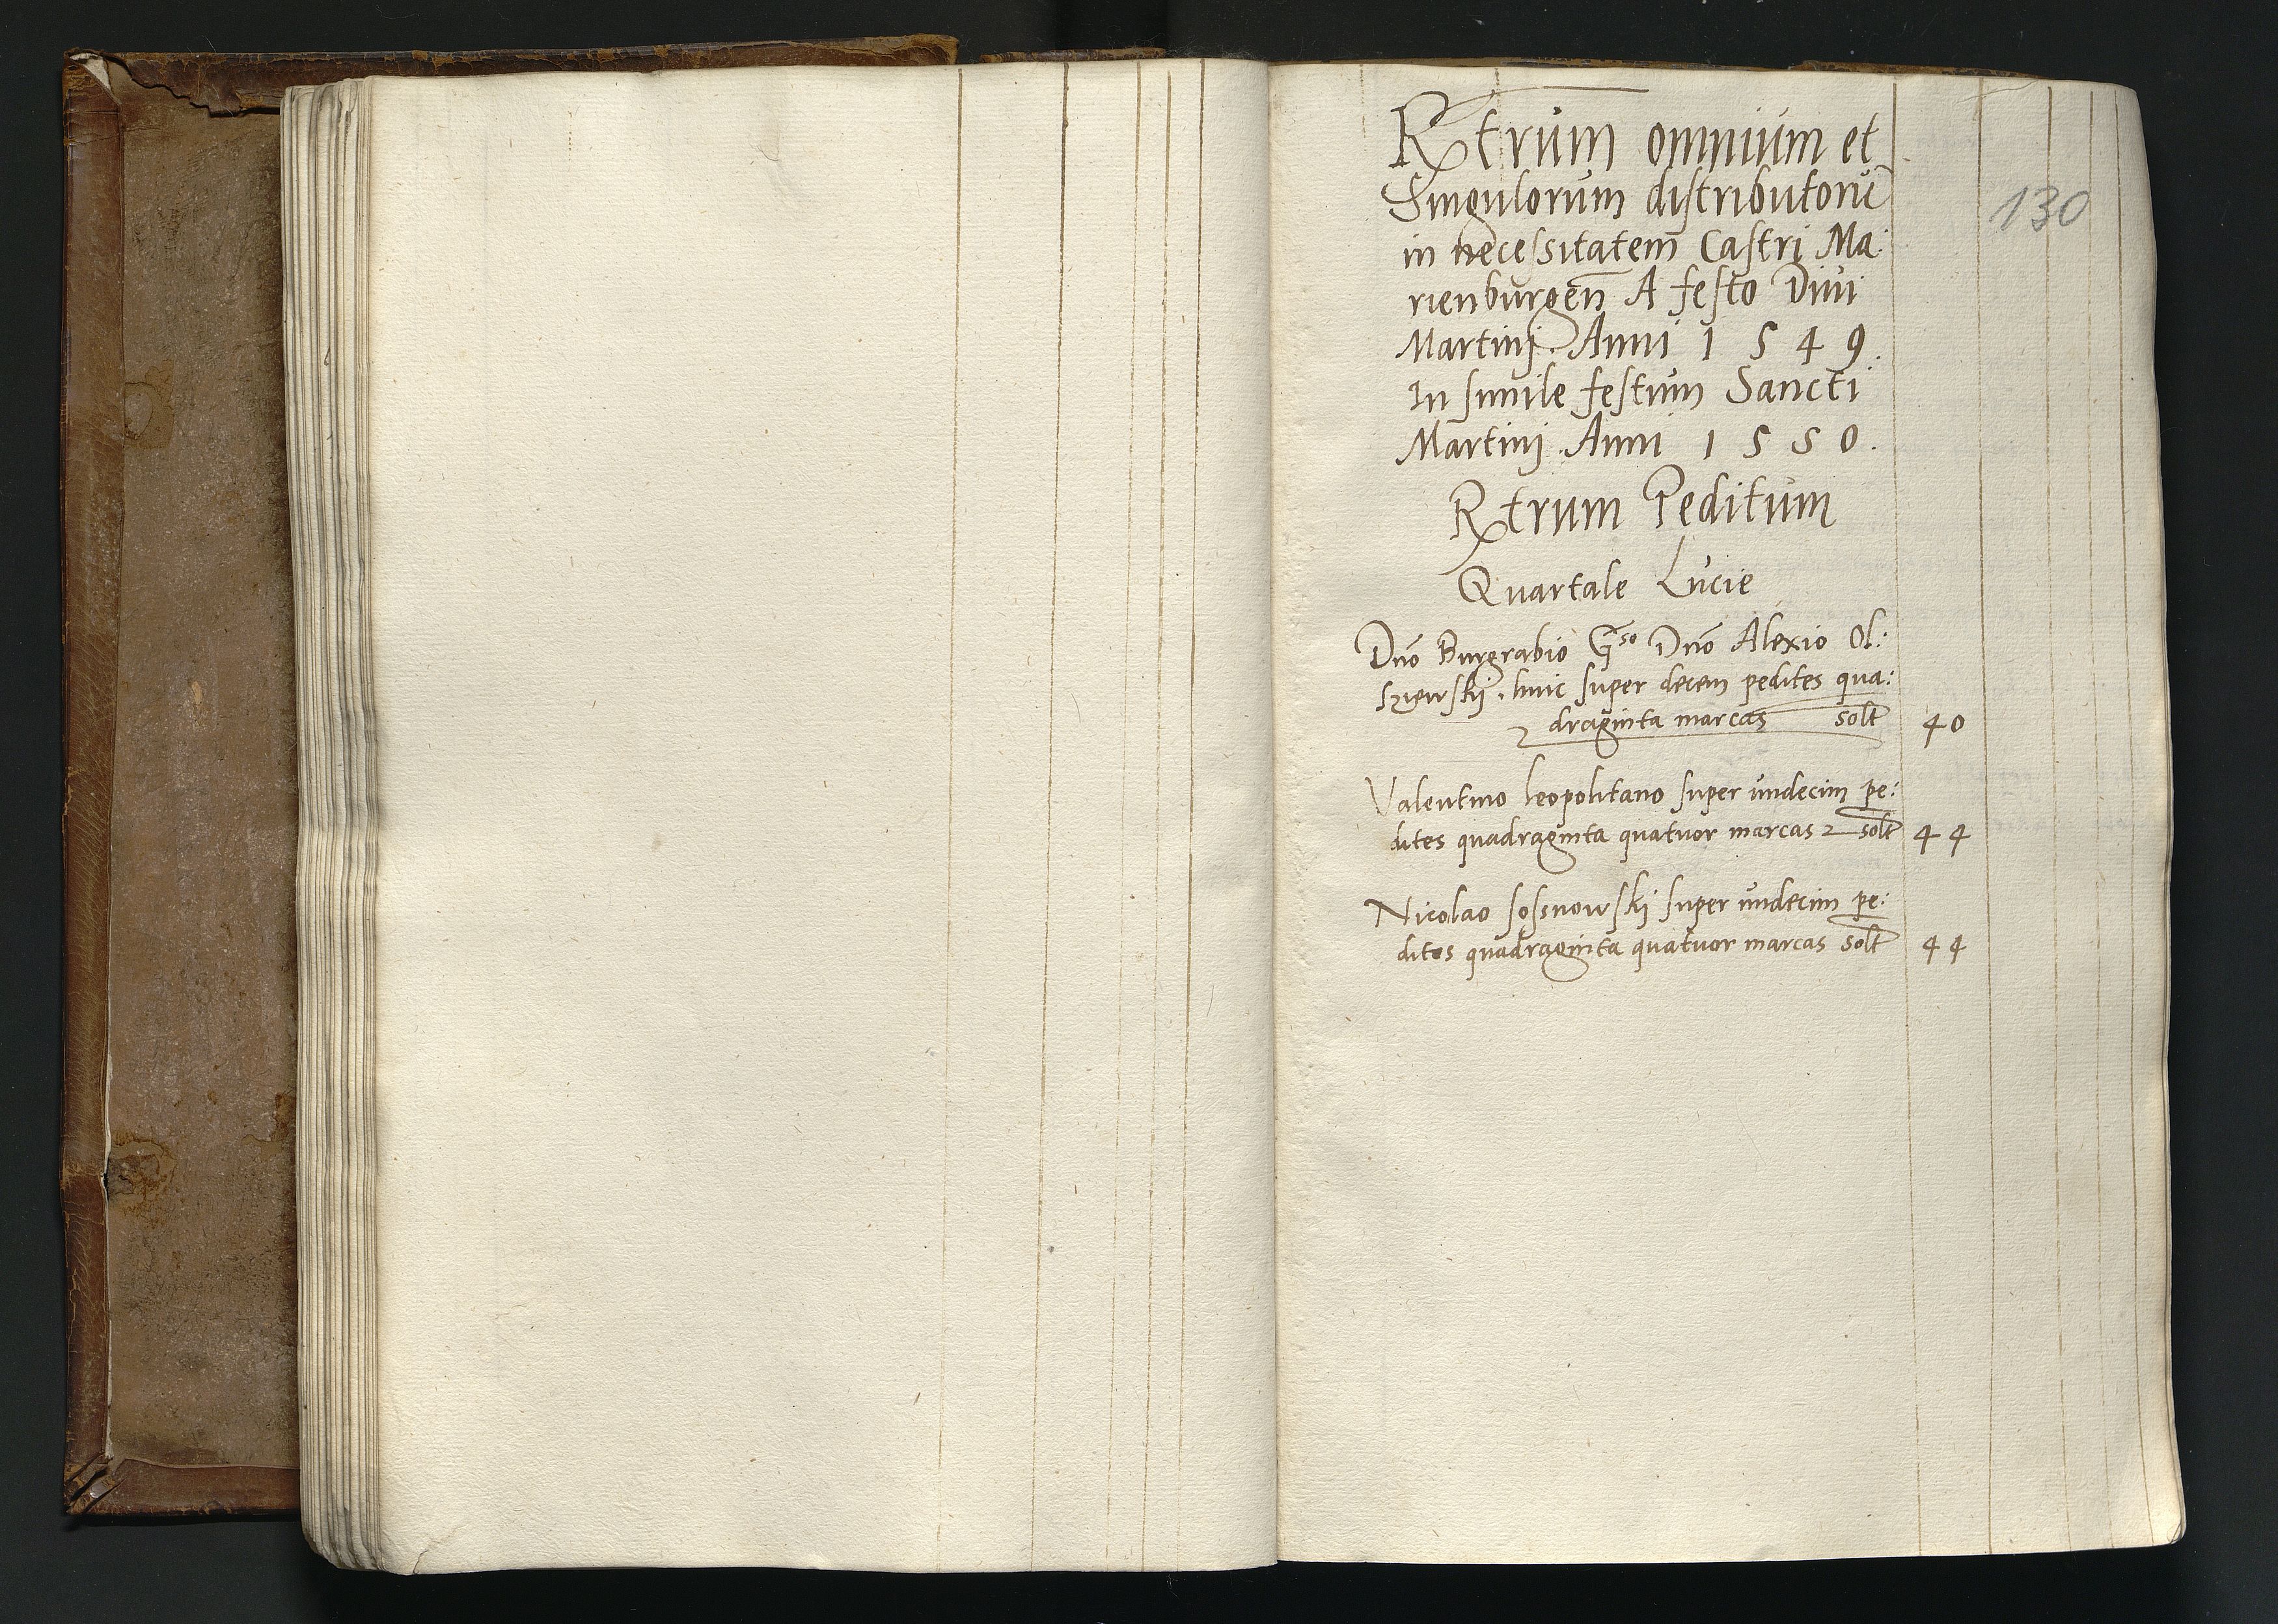 Rtrum omnium et
Singulorum distributorũ
in necessitatem Castri Ma:
rienburgeñ A festo Diui
Martinj. Anni 1549.
In simile festum Sancti
Martinj. Anni 1550.
130
Rtrum Peditum
Quartale Lucie
Dño Burgrabio G̃so Dño Alexio Ol:
szewskj. huic super decem pedites qua:
draginta marcas solt 40
Valentino leopolitano super undecim pe:
dites quadraginta quatuor marcas solt 44
Nicolao sossnowskj super undecim pe:
dites quadraginta quatuor marcas solt 44